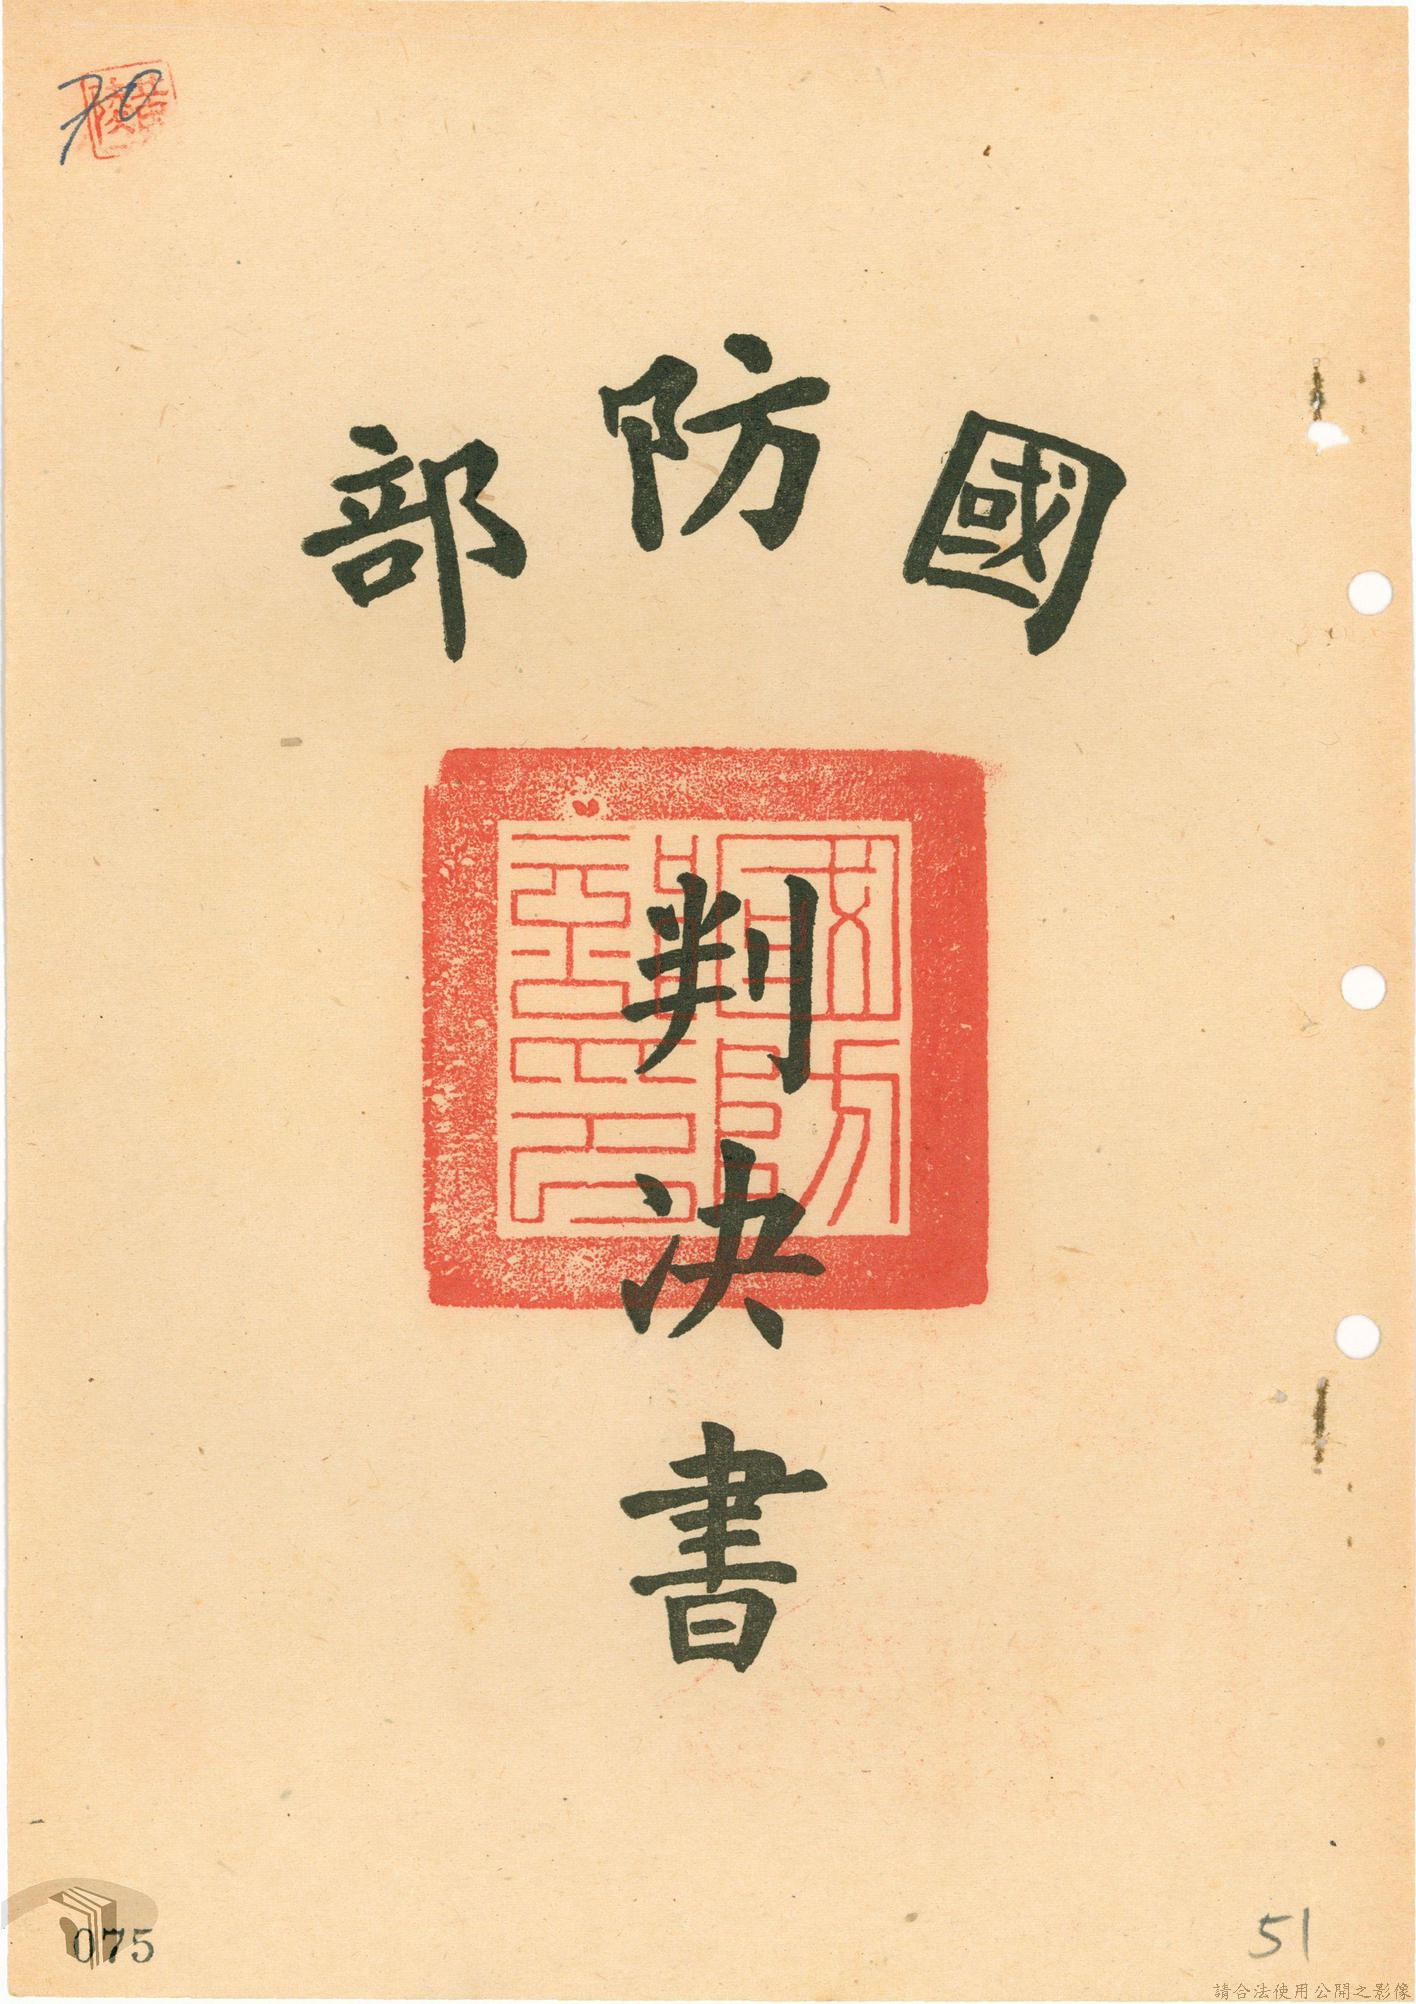 70
國防部
判決書
075
51
請合法使用公開之影像